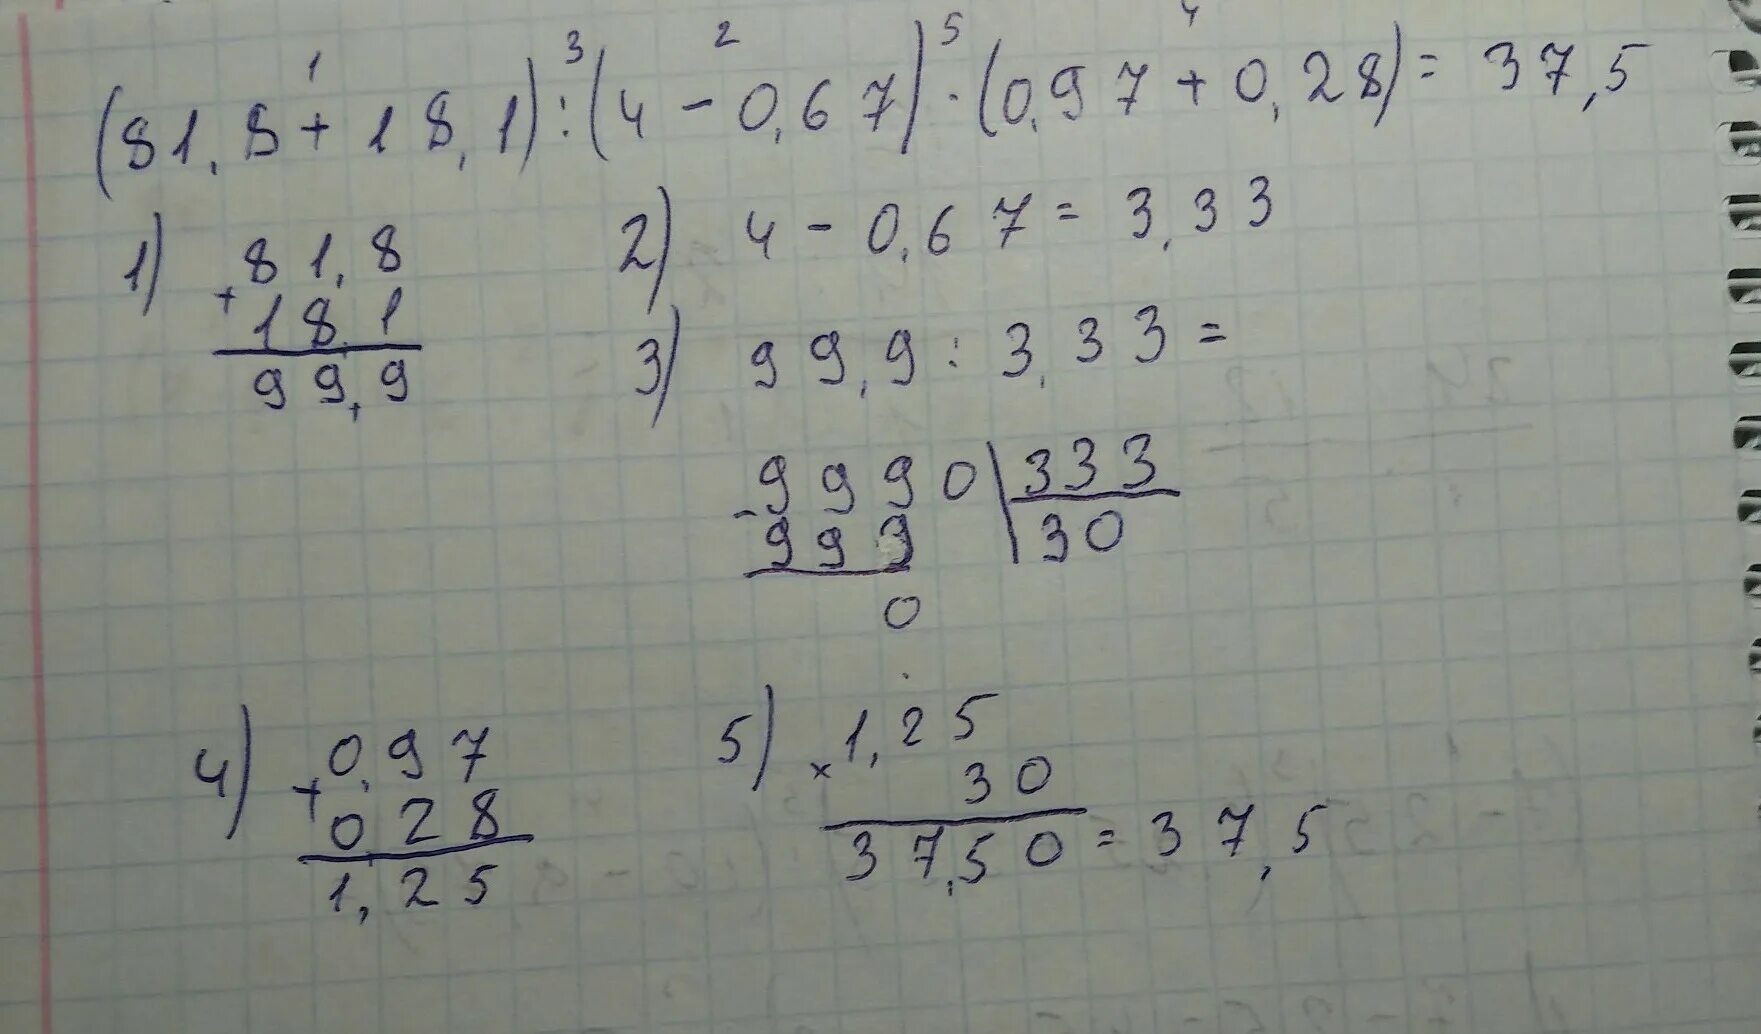 1 3 2 5 4
(81,8+18,1):(4-0,67)·(0,97+0,28)=37,5
1) +81,8
18,1
99,9
2) 4-0,67=3,33
3) 99,9:3,33=
-9990 333
999 30
0
4) +0,97
0,28
1,25
5) ×1,25
30
37,50=37,5